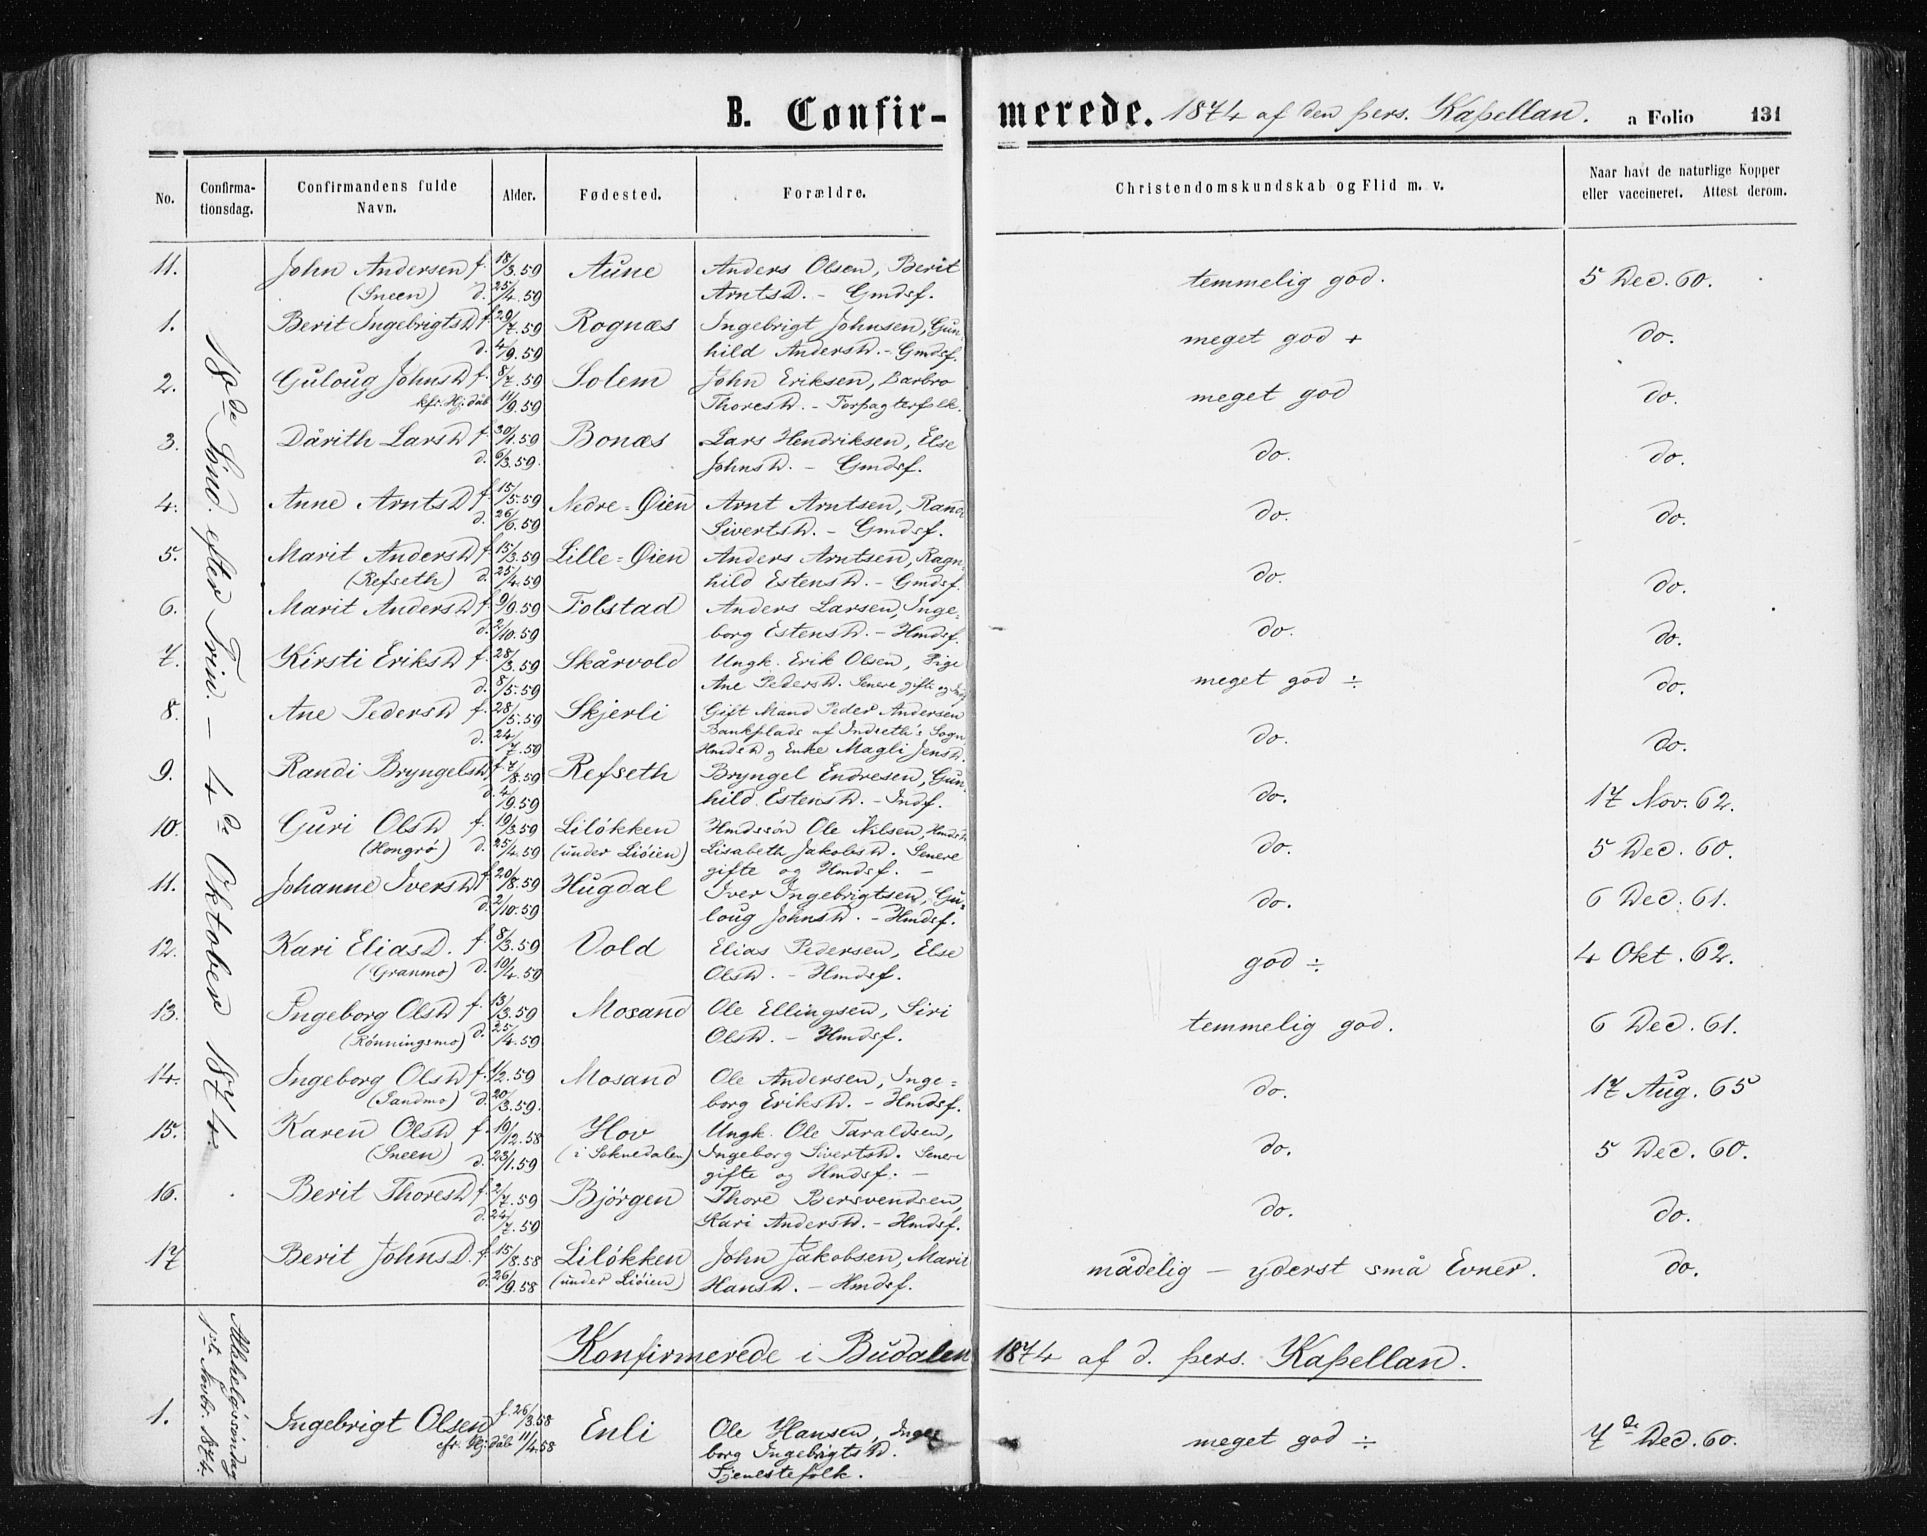 B. Confirmerede. 1874 af den pers. Kapellan. a Folio 131
No. Confirmationsdag. Confirmandens fulde Navn. Alder. Fødested. Forældre. Christendomskundskab og Flid m. v. Naar havt de naturlige Kopper eller vaccineret. Attest derom.
18de Sønd. efter Trin. – 4de Oktober 1874.
11. John Andersen f. 18/3.59 Aune Anders Olsen, Berit temmelig god. 5 Dec. 60.
(Sneen) d. 25/4.59 ArntsD. – Gmdsf.
1. Berit IngebrigtsD f. 29/7.59 Rognæs Ingebrigt Johnsen, Gun- meget god + do.
d. 4/9.59 hild AndersD. – Gmdsf.
2. Guloug JohnsD f. 8/7.59 Solem John Eriksen, Barbro meget god do.
kfr. Hj: dåb 11/9.59 ThoresD. – Forpagterfolk.
3. Dårith LarsD f. 30/1.59 Bonæs Lars Hendriksen, Else do. do.
d. 6/3.59. JohnsD. – Gmdsf.
4. Anne ArntsD f. 15/5.59 Nedre-Øien Arnt Arntsen, Randi do. do.
d. 26/6.59 SivertsD. – Gmdsf.
5. Marit AndersD f. 15/3.59 Lille-Øien Anders Arntsen, Ragn- do. do.
(Refseth) d. 25/4.59 hild EstensD. – Gmdsf.
6. Marit AndersD f. 9/9.59 Folstad Anders Larsen, Inge- do. do.
d. 2/10.59 borg EstensD. – Hmdsf.
7. Kirsti EriksD f. 28/3.59 Skårvold Ungk. Erik Olsen, Pige meget god ÷ do.
d. 8/5.59 Ane PedersD. Senere gifte og
8. Ane PedersD f. 28/5.59 Skjerli Gift Mand Peder Andersen do. do.
d. 24/7.59 Bankplads af Indseth's Sogn
HmdsD og Enke Magli JensD.
9. Randi BryngelsD f. 7/8.59 Refseth Bryngel Endresen, Gun- do. 17 Nov. 62.
d. 4/9.59 hild EstensD. – Indf.
10. Guri OlsD f. 19/3.59 Liløkken Hmdssøn Ole Nilsen, HmdsD do. 5 Dec. 60.
(Hongrø) d. 25/4.59 (under Liøien) Lisabeth JakobsD. Senere
gifte og Hmdsf. –
11. Johanne IversD f. 20/8.59 Hugdal Iver Ingebrigtsen, Gu- do. 6 Dec. 61.
d. 2/10.59 loug JohnsD. – Hmdsf.
12. Kari EliasD. f. 8/3.59 Vold Elias Pedersen, Else god ÷ 4 Okt. 62.
(Granmo) d. 10/4.59 OlsD. – Hmdsf.
13. Ingeborg OlsD f. 13/3.59 Mosand Ole Ellingsen, Siri temmelig god. 6 Dec. 61.
(Rønningsmo) d. 25/4.59 OlsD. – Hmdsf.
14. Ingeborg OlsD f. 1/2.59 Mosand Ole Andersen, Inge- do. 17 Aug. 65
(Sandmo) d. 20/3.59. borg EriksD. – Hmdsf.
15. Karen OlsD f. 19/12.58 Hov Ungk. Ole Taraldsen, do. 5 Dec. 60.
(Sneen) d. 23/1.59 (i Soknedalen) Ingeborg SivertsD. Senere
gifte og Hmdsf. –
16. Berit ThoresD f. 2/7.59 Bjørgen Thore Bersvendsen, do. do.
d. 24/7.59 Kari AndersD. – Hmdsf.
17 Berit JohnsD. f. 15/8.58 Liløkken John Jakobsen, Marit mådelig – yderst små Evner. do.
d. 26/9.58 (under Liøien) HansD. – Hmdsf.
Konfirmerede i Budalen 1874 af d. pers. Kapellan.
Allehelgensøndag
1ste Novbr. 1874.
1. Ingebrigt Olsen f. 26/3.58 Enli Ole Hansen, Inge- meget god ÷ 7de Dec. 60.
cfr. Hj: dåb 11/4.58 borg IngebrigtsD.
Tjenestefolk.